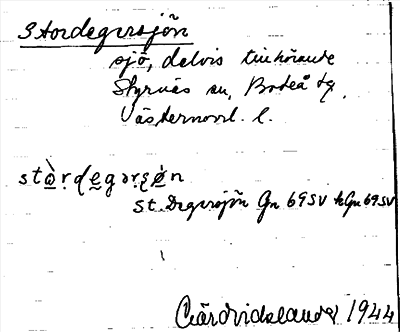 Stordegersjön
sjö, delvis tillhörande
Styrnäs sn, Boteå tg.
Västernorrl. l.
stòrdegərsjø̀n
St. Degersjön Gn 69 SV kGn 69 SV
1944